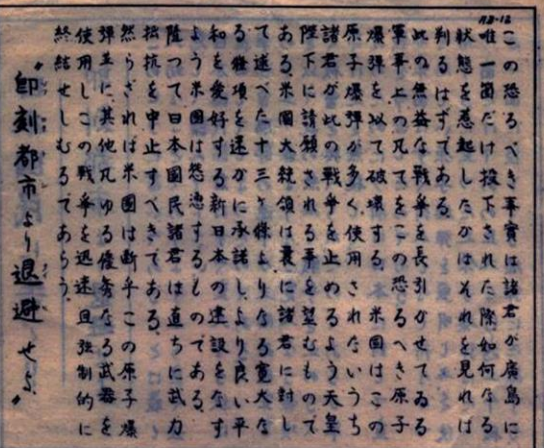 AB-12
この恐るべき事實は諸君が廣島に
唯一箇だけ投下された際如何なる
狀態を惹起したかはそれを見れば
判るはずである
此の無益な戰爭を長引かせてゐる
軍事上の凡てをこの恐るべき原子
爆彈を以て破壞する。米國はこの
原子爆彈が多く使用されないうち
諸君が此の戰爭を止めるよう天皇
陛下に請願される事を望むもので
ある。米國大統領は曩に諸君に對し
て述べた十三ヶ條よりなる寬大な
る條項を速かに承諾しより良い平
和を愛好する新日本の建設をなす
よう米國は慫慂するものである、
隨って日本國民諸君は直ちに武力
抵抗を中止すべきである、
然らざれば米國は斷乎この原子爆
彈並に其他凡ゆる優秀なる武器を
使用しこの戰爭を迅速且强制的に
終結せしむるであらう。
〝即刻都市より退避せよ〟